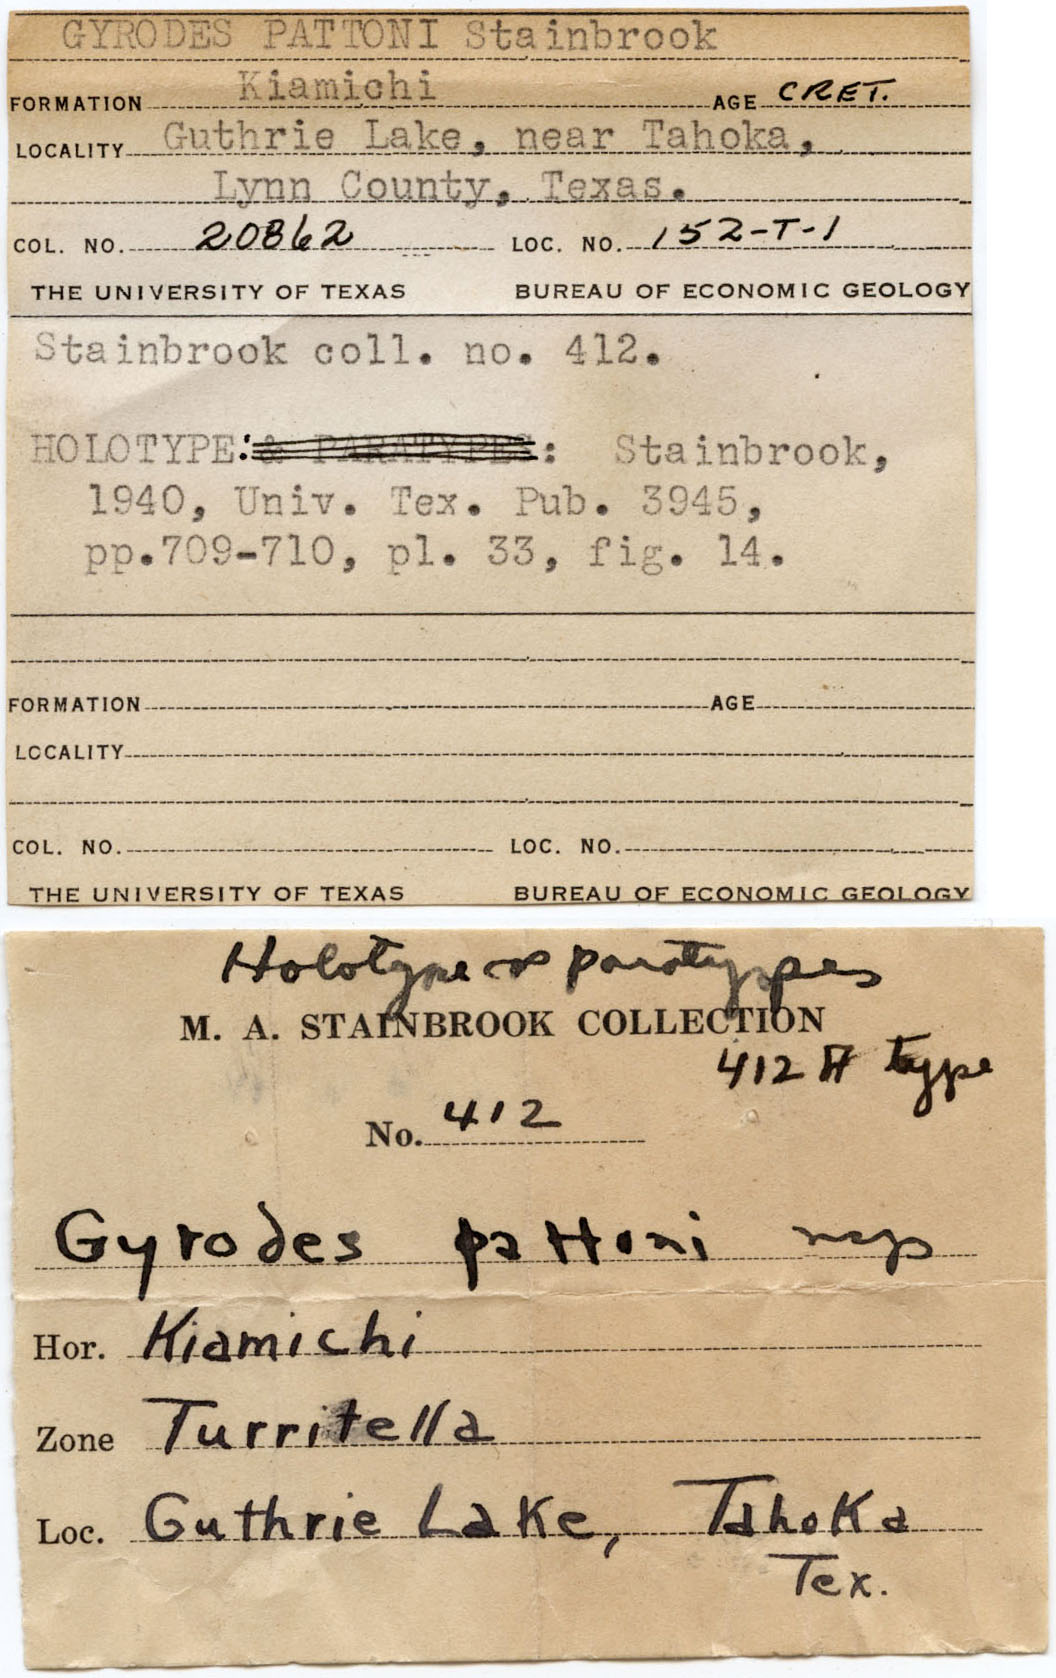 GYRODES PATTONI Stainbrook
FORMATION Kiamichi AGE CRET.
LOCALITY Guthrie Lake, near Tahoka,
Lynn County, Texas.
COL. NO. 20862 LOC. NO. 152-T-1
THE UNIVERSITY OF TEXAS BUREAU OF ECONOMIC GEOLOGY
Stainbrook coll. no. 412.
HOLOTYPE: & PARATYPES: Stainbrook,
1940, Univ. Tex. Pub. 3945,
pp.709-710, pl. 33, fig. 14.
FORMATION AGE
LOCALITY
COL. NO. LOC. NO.
THE UNIVERSITY OF TEXAS BUREAU OF ECONOMIC GEOLOGY
Holotype & paratypes
M. A. STAINBROOK COLLECTION
412 A type
No. 412
Gyrodes pattoni nsp
Hor. Kiamichi
Zone Turritella
Loc. Guthrie Lake, Tahoka
Tex.